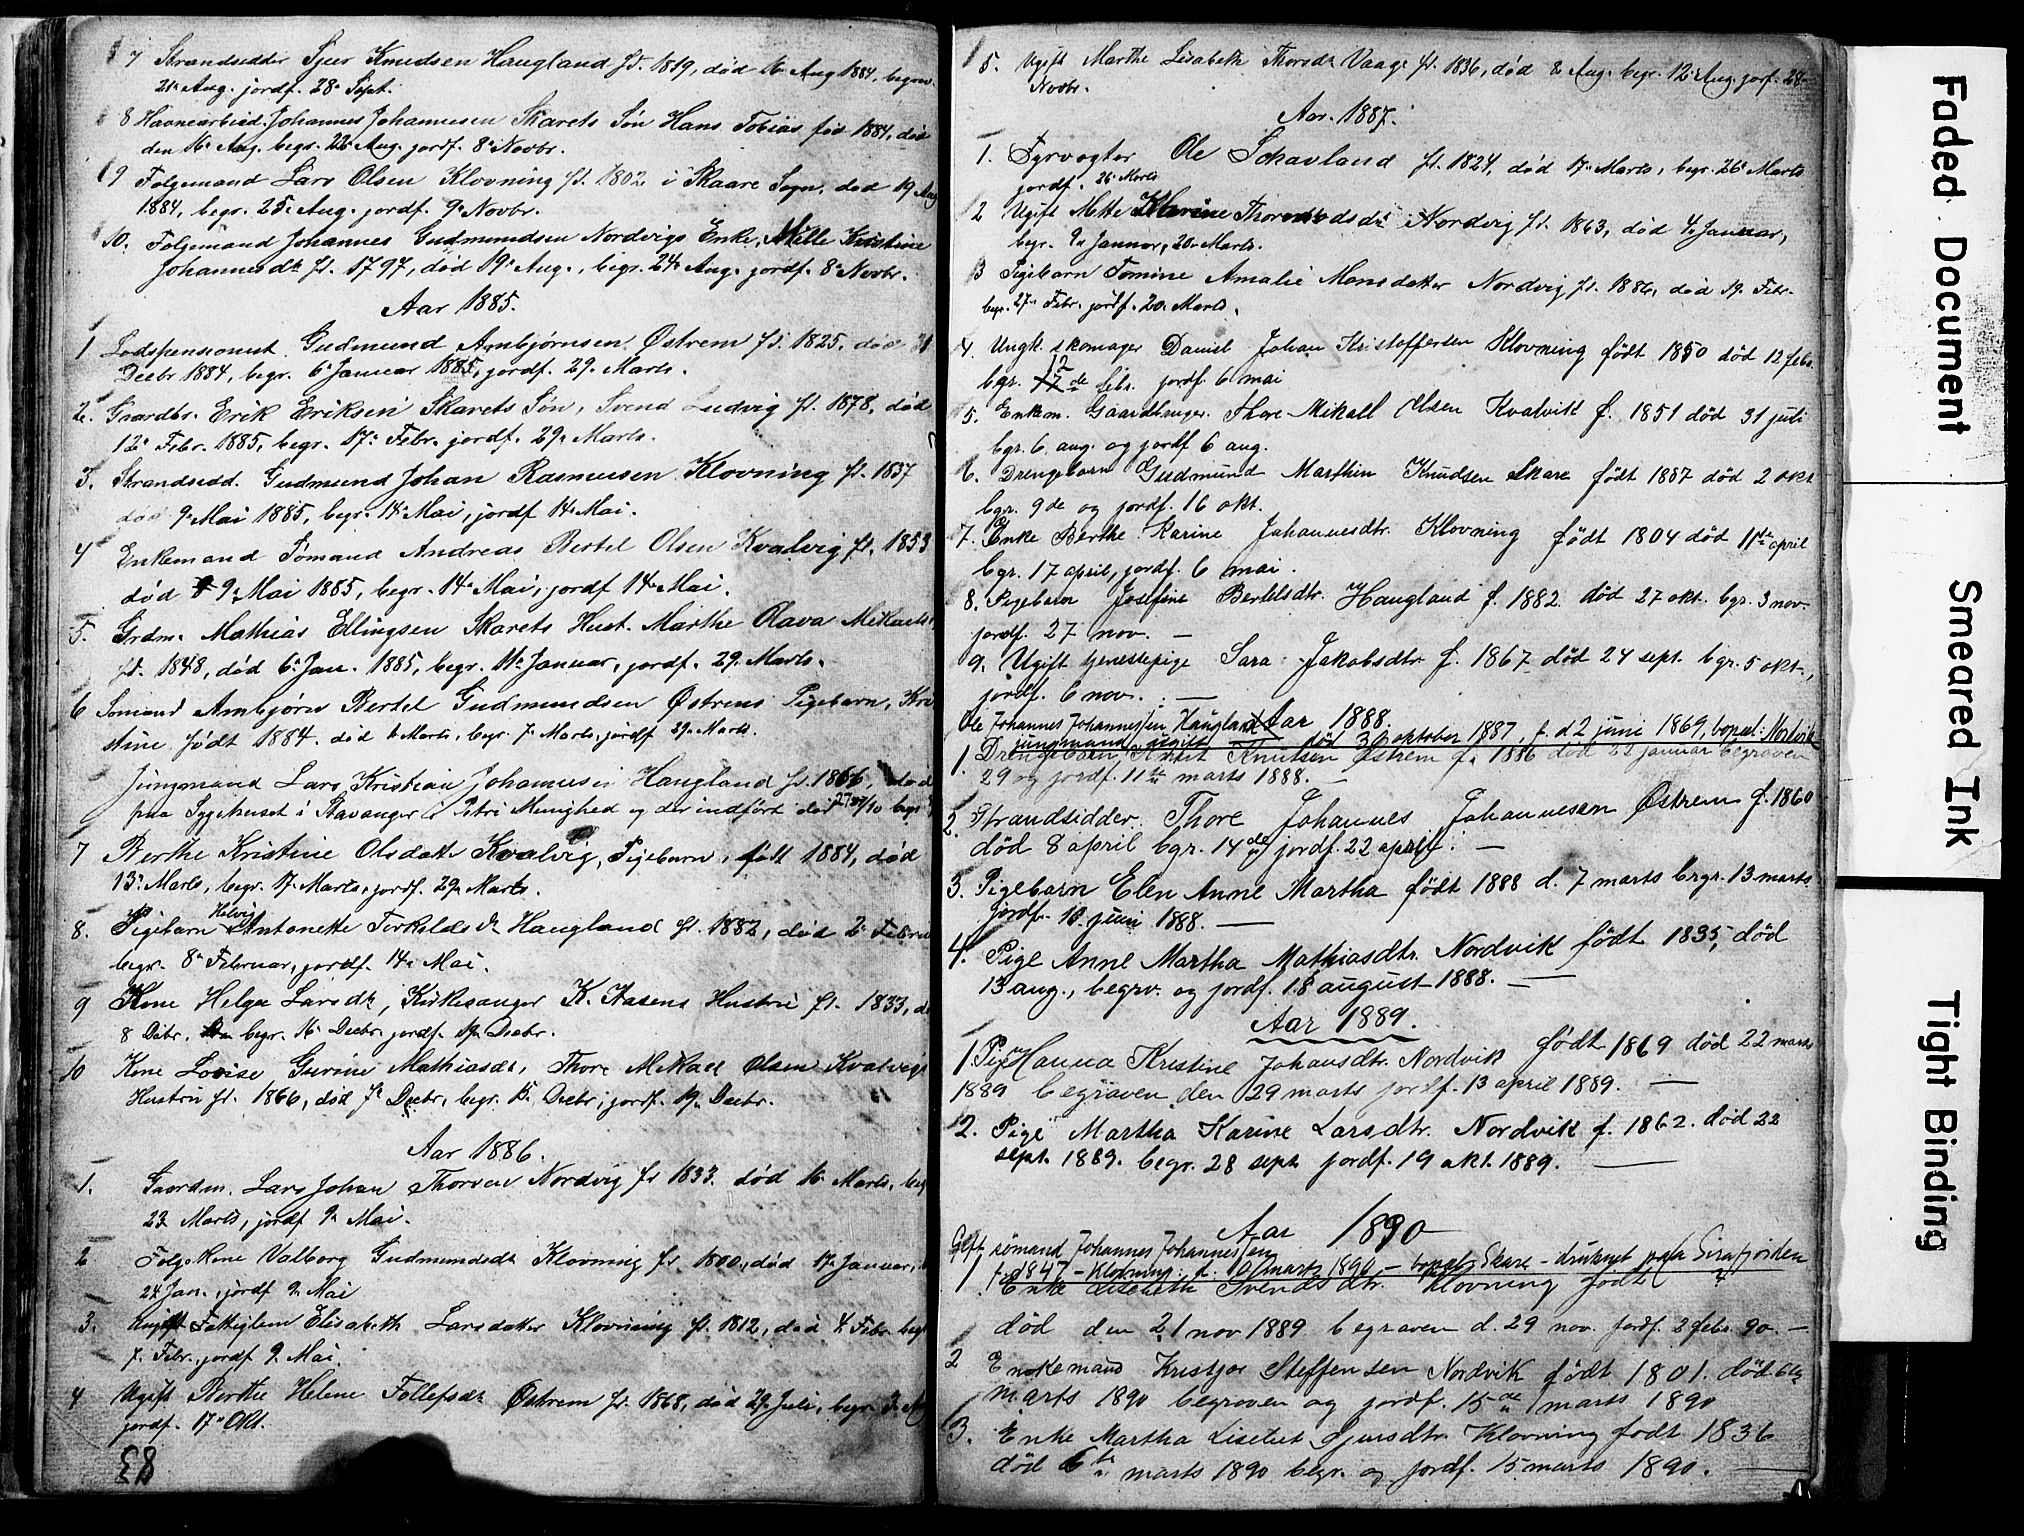 7 Strandsidder Sjur Knudsen Haugland fd. 1819, død 16. Aug 1884, begrav.
21. Aug. jordf. 28. Sept.
8 Havnearbeid. Johannes Johannesen Skarets Søn Hans Tobias fød 1884, død
den 16. Aug. begr. 22. Aug. jordf. 8. Novbr.
9 Folgemand Lars Olsen Klovning fd. 1802 i Skaare Sogn, død 19 Aug
1884, begr. 25. Aug. jordf. 9. Novbr.
10. Folgemand Johannes Gudmundsen Nordvigs Enke, Mille Kristine
Johannesdtr fd. 1797, død 19. Aug., begr. 24. Aug. jordf. 8. Novbr.
Aar 1885.
1 Lodspensionist Gudmund Arnbjørnsen Østrem fd. 1825, død 31
Decbr 1884, begr. 6. Januar 1885, jordf. 29. Marts.
2. Gaardbr. Erik Eriksen Skarets Søn, Svend Ludvig fd. 1878, død
12. Febr. 1885, begr. 17. Febr. jordf. 29. Marts.
3. Strandsidd. Gudmund Johan Rasmussen Klovning fd. 1837
død 9. Mai 1885, begr. 14. Mai, jordf 14. Mai.
4 Enkemand Sømand Andreas Bertel Olsen Kvalvig fd. 1853
død 9. Mai 1885, begr. 14. Mai, jordf 14. Mai.
5. Grdm. Mathias Ellingsen Skarets Hust. Marthe Olava Mikaels
fd. 1848, død 6. Jan. 1885, begr. 11. Januar, jordf. 29. Marts.
6 Sømand Arnbjørn Bertel Gudmundsen Østrems Pigebarn, Kri
stine født 1884. død Marts, begr. 7. Marts, jordf 29. Marts.
Jungmand Lars Kristian Johannesen Haugland fd. 1866, død
paa Sygehuset i Stavanger i Petri Menighed og der indført død 27/10 begr
7 Berthe Kristine Olsdatter Kvalvig, Pigebarn, født 1884, død
13. Marts, begr. 17. Marts, jordf. 29. Marts.
8. Pigebarn Helvig Antonette Torkildsdtr Haugland fd. 1882, død 2. Februar
begr. 8. Februar, jordf. 14. Mai.
9 Kone Helga Larsdtr, Kirkesanger K. Aasens Hustru fd. 1833, d
8 Decbr. begr. 16. Decbr. jordf. 19. Decbr.
10 Kone Lovise Gurine Mathiasdtr, Thore Mikael Olsen Kvalvigs
Hustru fd. 1866, død 7. Decbr, begr. 15. Decbr, jordf. 19. Decbr.
Aar 1886.
1. Gaardm. Lars Johan Thorsen Nordvig fd 1833. død 16. Marts, begr
23. Marts, jordf 9. Mai.
2 Folgekone Valborg Gudmundsdtr Klovning fd. 1800, død 17. Januar,
24 Jan., jordf 9. Mai
3. Ugift Fattiglem Elisabeth Larsdatter Klovning fd. 1812, død 4. Febr. begr
7. Febr., jordf 9. Mai.
4 Ugift Berthe Helene Tollefsdtr Østrem fd. 1868, død 29. Juli, begr. 3. Aug
jordf. 17. Okt.
83
5. Ugift Marthe Lisabeth Thorsdtr Vaage fd. 1836, død 8. Aug. begr. 12. Aug. jordf. 28.
Novbr.
Aar. 1887.
1. Fyrvogter Ole Schavland fd. 1824, død 17. Marts, begr. 26. Marts
jordf. 26. Marts
2 Ugift Mette Karine Thormodsdtr Nordvig fd. 1863, død 4. Januar,
begr. 9. Januar, 20. Marts.
3 Pigebarn Tomine Amalie Monsdatter Nordvig fd. 1886, død 19. Febr.
begr. 27. Febr., jordf. 20. Marts.
4. Ungk. skomager Daniel Johan Kristoffersen Klovning født 1850 død 12 febr.
bgr. 17 de febr. jordf. 6 mai
5. Enkem. Gaardbruger. Thore Mikael Olsen Kvalvik f. 1851 død 31 juli
bgr. 6. aug. og jordf 6 aug.
6. Drengebarn Gudmund Marthin Knudsen Skare født 1887 død 2 okt
bgr. 9de og jordf. 16 okt.
7. Enke Berthe Karine Johannesdtr. Klovning født 1804 død 11te april
bgr. 17 april, jordf. 6 mai.
8. Pigebarn Josefine Bertelsdtr. Haugland f. 1882. død 27 okt. bgr. 3 nov.
jordf. 27 nov. —
9. Ugift tjenestepige Sara Jakobsdtr f. 1867 død 24 sept. bgr. 5 okt.,
jordf. 6 nov. —
Aar 1888.
Ole Johannes Johannessen Haugland
jungmand, ugift død 31 oktober 1887, f. d. 2 juni 1869, bopæl: Nordvik
1. Drengebarn Knut Knutsen Østrem f. 1886 død 22 januar begraven
29 og jordf. 11te marts 1888. —
2. Strandsidder. Thore Johannes Johannesen Østrem f. 1860
død 8 april bgr. 14de jordf. 22 april. —
3. Pigebarn Elen Anne Martha født 1888 d. 7 marts begr. 13 marts
jordf. 10 juni 1888. —
4. Pige Anne Martha Mathiasdtr. Nordvik født 1835, død
13 aug., begrv. og jordf. 18 august 1888. —
Aar 1889.
1 Pige Hanna Kristine Johansdtr. Nordvik født 1869 død 22 marts
1889 begraven den 29 marts jordf. 13 april 1889. —
2. Pige Martha Karine Larsdtr. Nordvik f. 1862. død 22
sept. 1889. begr. 28 sept. jordf. 19 okt. 1889. —
Aar 1890
Gift, sømand Johannes Johannessen
f. 1847 - Klovning: d. 10 marts 1890, - bopæl Skare - druknet paa Sirafjorden
1. Enke Lisebeth Svendsdtr. Klovning født
død den 21 nov 1889 begraven d. 29 nov. jordf. 2 febr. 90. —
2 Enkemand Kristjor Steffensen Nordvik født 1801. død 6te
marts 1890 begroven og jordf. 15de marts 1890
3. Enke Martha Liselut Sjursdtr. Klovning født 1836
død 6te marts 1890 begr. og jordf. 15 marts 1890. —
Faded Document
Smeared Ink
Tight Binding